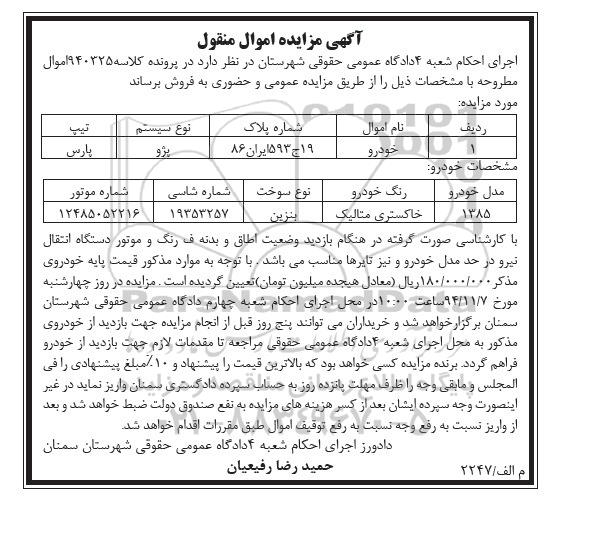 آگهی مزایده اموال منقول
اجرای احکام شعبه ۴دادگاه عمومی حقوقی شهرستان در نظر دارد در پرونده کلاسه۹۴۰۳۲۵اموال
مطروحه با مشخصات ذیل را از طریق مزایده عمومی و حضوری به فروش برساند
مورد مزایده:
ردیف نام اموال شماره پلاک نوع سیستم تیپ
۱ خودرو ۱۹ج۵۹۳ایران۸۶ پژو پارس
مشخصات خودرو:
مدل خودرو رنگ خودرو نوع سوخت شماره شاسی شماره موتور
۱۳۸۵ خاکستری متالیک بنزین ۱۹۳۵۳۲۵۷ ۱۲۴۸۵۰۵۲۲۱۶
با کارشناسی صورت گرفته در هنگام بازدید وضعیت اطاق و بدنه ف رنگ و موتور دستگاه انتقال
نیرو در حد مدل خودرو و نیز تایرها مناسب می باشد . با توجه به موارد مذکور قیمت پایه خودروی
مذکر۱۸۰/۰۰۰/۰۰۰ریال (معادل هیجده میلیون تومان)تعیین گردیده است . مزایده در روز چهارشنبه
مورخ ۹۴/۱۱/۷ساعت ۱۰:۰۰در محل اجرای احکام شعبه چهارم دادگاه عمومی حقوقی شهرستان
سمنان برگزارخواهد شد و خریداران می توانند پنج روز قبل از انجام مزایده جهت بازدید از خودروی
مذکور به محل اجرای شعبه ۴دادگاه عمومی حقوقی مراجعه تا مقدمات لازم جهت بازدید از خودرو
فراهم گردد. برنده مزایده کسی خواهد بود که بالاترین قیمت را پیشنهاد و ۱۰٪مبلغ پیشنهادی را فی
المجلس و مابقی وجه را ظرف مهلت پانزده روز به حساب سپرده دادگستری سمنان واریز نماید در غیر
اینصورت وجه سپرده ایشان بعد از کسر هزینه های مزایده به نفع صندوق دولت ضبط خواهد شد و بعد
از واریز نسبت به رفع وجه نسبت به رفع توقیف اموال طبق مقررات اقدام خواهد شد.
دادورز اجرای احکام شعبه ۴دادگاه عمومی حقوقی شهرستان سمنان
حمید رضا رفیعیان
م الف/۲۲۴۷